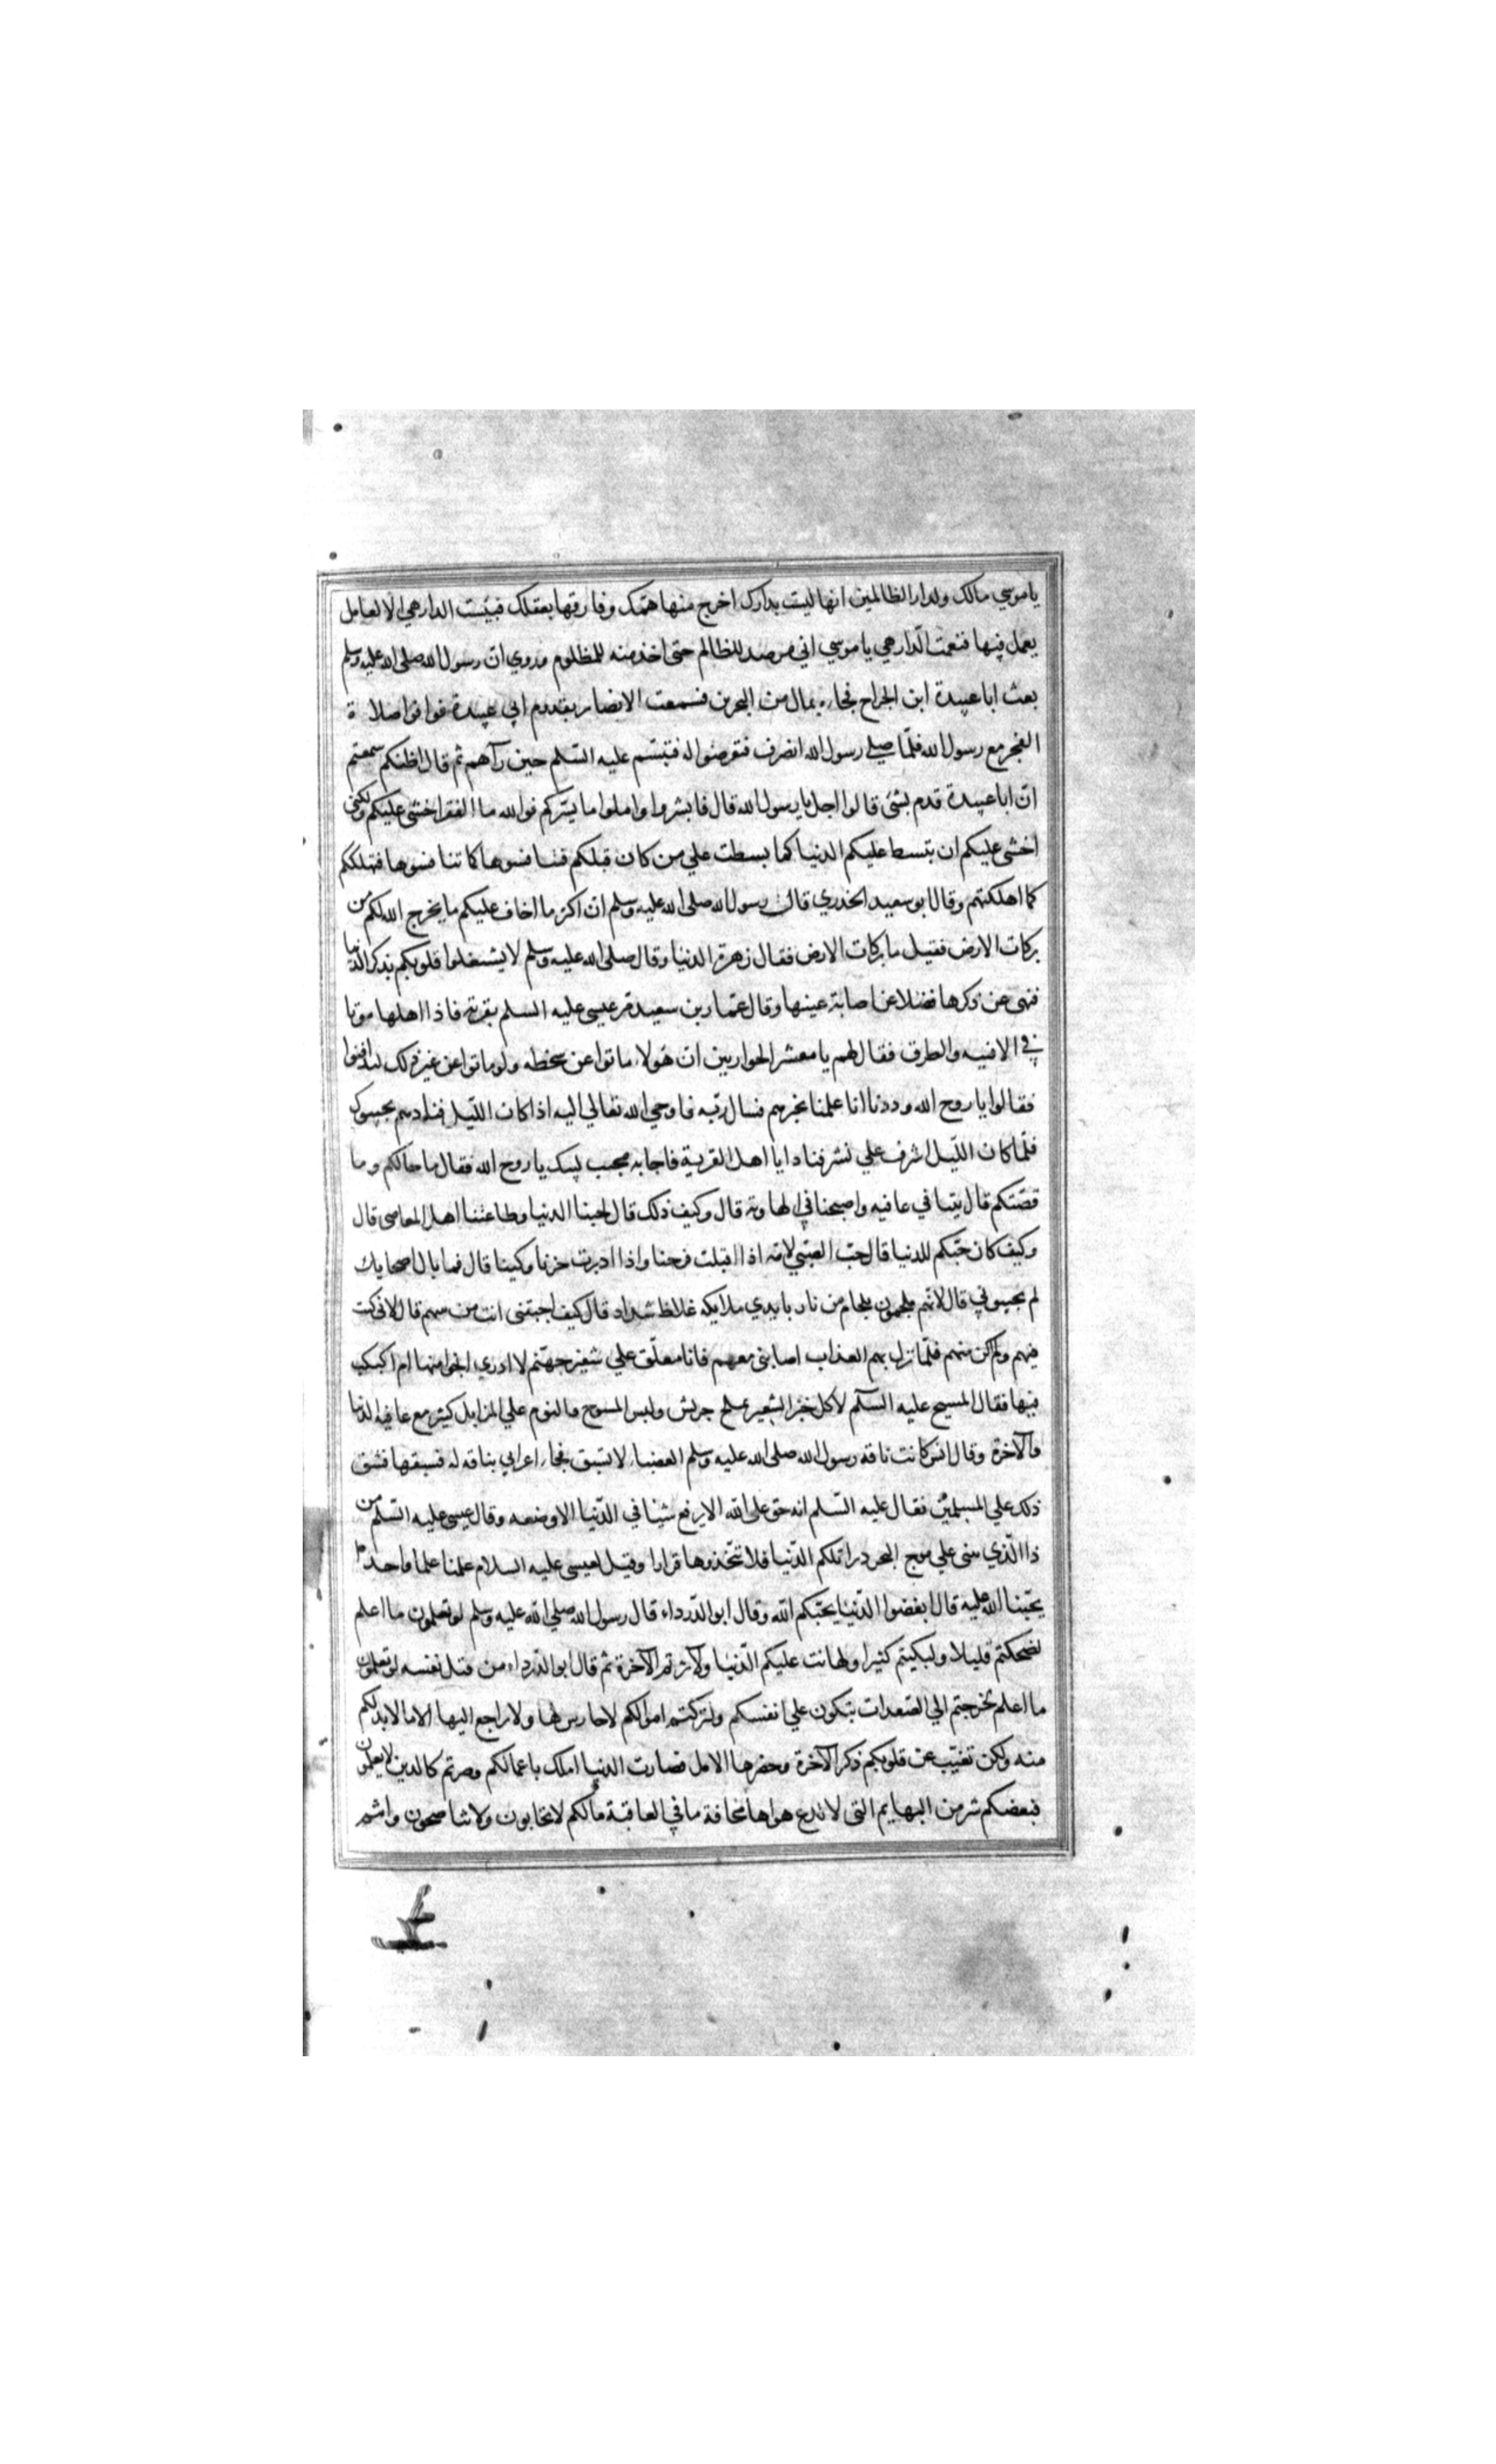 ياموسي مالك ولدار الظالمين انها ليست بدارك اخرج منها همّك وفارقها بعقلك فبئست الدار هي الا لعامل
يعمل فيها فنعمت الدار هي ياموسي اني مرصد للظالم حتى اخذ منه للمظلوم وروي ان رسول الله صلى الله عليه وسلم
بعث ابا عبيدة ابن الجراح فجاء بمال من البحرين فسمعت الانصار بقدوم ابي عبيدة فوافوا صلاة
الفجر مع رسول الله فلمّا صلي رسول الله انصرف فتعرضوا له فتبسّم عليه السّلم حين رآهم ثم قال اظنكم سمعتم
ان ابا عبيدة قدم بشئ قالوا اجل يا رسول الله قال فابشروا واملوا ما يسّركم فوالله ما الفقر اخشى عليكم ولكني
اخشى عليكم ان تبسط عليكم الدنيا كما بسطت علي من كان قبلكم فتنافسوها كما تنافسوها فتهلككم
كما اهلكتهم وقال ابو سعيد الخدري قال رسول الله صلى الله عليه وسلم ان اكثر ما اخاف عليكم ما يخرج الله لكم من
بركات الارض فقيل ما بركات الارض فقال زهرة الدنيا وقال صلى الله عليه وسلم لا يشغلوا قلوبكم بذكر الدنيا
فنهى عن ذكرها فضلا عن اصابة عينها وقال عمّار بن سعيد مّر عيسى عليه السلم بقرية فاذا اهلها موتا
في الافنيه والطرق فقال لهم يا معشر الحواريين ان هولاء ماتوا عن سخطه ولو ماتوا عن غير ذلك لتدافنوا
فقالوا يا روح الله وددنا انا علمنا بخبرهم فسال ربّه فاوحي الله تعالي اليه اذا كان الليل فنادهم يجيبوك
فلمّا كان الليل اشرف علي نشز فنادا يا اهل القرية فاجابه مجيب لبيك يا روح الله فقال ما حالكم وما
قصّتكم قال بتنا في عافيه واصبحنا في الهاويه قال وكيف ذلك قال لحبنا الدنيا وطاعتنا اهل المعاصى قال
وكيف كان حبّكم للدنيا قال حبّ الصّبي لامّه اذا اقبلت فرحنا واذا ادبرت حزنا وبكينا قال فما بال اصحابك
لم يجيبوني قال لانهم ملجمون بلجام من نار بايدي ملايكه غلاظ شداد قال كيف اجبتني انت من بينهم قال لاني كنت
فيهم ولم اكن منهم فلمّا نزل بهم العذاب اصابني معهم فانا معلّق علي شفير جهنّم لا ادري انجوا منها ام اكبكب
فيها فقال المسيح عليه السّلم لاكل خبز الشعير بملح جريش ولبس المسوح والنوم علي المزابل كثير مع عافية الدنيا
والآخرة وقال انس كانت ناقه رسول الله صلى الله عليه وسلم العضباء لا تسبق فجاء اعرابي بناقه له فسبقها فشق
ذلك علي المسلمين فقال عليه السّلم انه حق على الله الا يرفع شيئا في الدّنيا الا وضعه وقال عيسى عليه السّلم من
ذا الّذي يبني علي موج البحر دارا تلكم الدّنيا فلا تتّخذوها قرارا وقيل لعيسى عليه السلام علمنا علما واحدا
يحبّنا الله عليه قال ابغضوا الدّنيا يحبّكم الله وقال ابو الدّرداء قال رسول الله صلي الله عليه وسلم لو تعلمون ما اعلم
لضحكتم قليلا ولبكيتم كثيرا ولهانت عليكم الدّنيا ولآثرتم الآخرة ثم قال ابو الدّرداء من قبل نفسه لو تعلمون
ما اعلم لخرجتم الي الصّعدات تبكون علي انفسكم ولتركتم اموالكم لا حارس لها ولا راجع اليها الا ما لا بد لكم
منه ولكن تغيّب عن قلوبكم ذكر الآخرة وحضرها الامل فصارت الدنيا املك باعمالكم وصرتم كالذين لا يعلمون
فبعضكم شر من البهايم التى لا تدع هواها مخافة ما في العاقبة مالكم لا تحابون ولا تناصحون وانتم